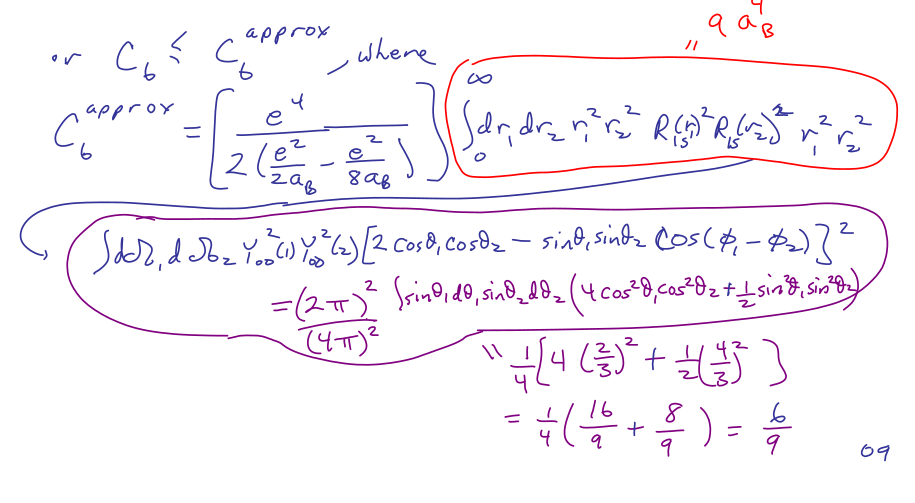 9 a_B^4
or C_6 ≤ C_6^approx, where "
C_6^approx = [ e^4 / 2 ( e^2/2a_B - e^2/8a_B ) ] ∫_0^∞ dr_1 dr_2 r_1^2 r_2^2 R_1s(r_1)^2 R_1s(r_2)^2 r_1^2 r_2^2
∫dΩ_1 dΩ_2 Y_00^2(1) Y_00^2(2) [2 cosθ_1 cosθ_2 - sinθ_1 sinθ_2 cos(ϕ_1 - ϕ_2)]^2
= (2π)^2 / (4π)^2 ∫sinθ_1 dθ_1 sinθ_2 dθ_2 (4 cos^2θ_1 cos^2θ_2 + 1/2 sin^2θ_1 sin^2θ_2)
" 1/4 [4 (2/3)^2 + 1/2 (4/3)^2]
= 1/4 (16/9 + 8/9) = 6/9
09